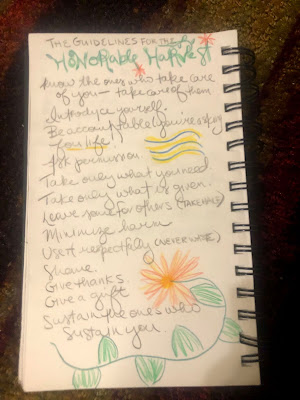 THE GUIDELINES FOR THE
HONORABLE HARVEST
Know the ones who take care
of you — take care of them
Introduce yourself.
Be accountable (you're asking
for life)
Ask permission
Take only what you need
Take only what is given.
Leave some for others (TAKE HALF)
Minimize harm
Use it respectfully (NEVER WASTE)
Share.
Give thanks.
Give a gift
Sustain the ones who
Sustain you.